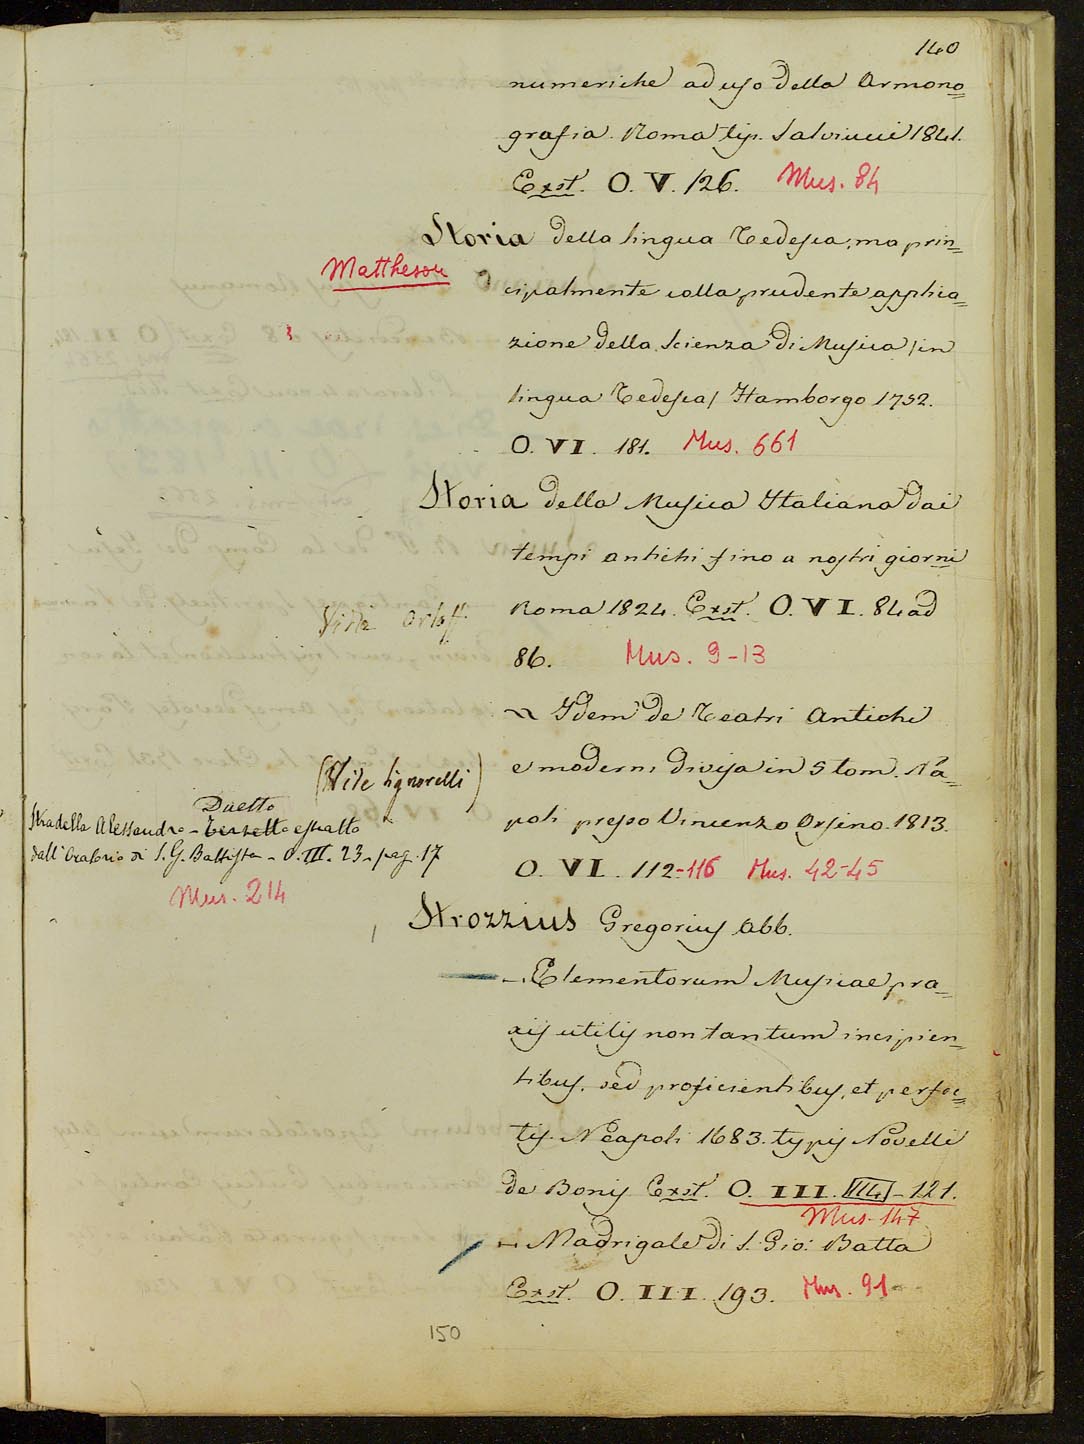 140
numeriche ad uso della Armono=
grafia. Roma tip. Salviucci 1841.
Exst. O. V. 126. Mus. 84
Storia della lingua Tedesca, ma prin=
Mattheson
cipalmente colla prudente applica=
zione della Scienza di Musica /in
lingua Tedesca/ Hamborgo 1752.
O. VI. 181. Mus. 661
Storia della Musica Italiana dai
tempi antichi fino a nostri giorni
Roma 1824. Exst. O. VI. 84 ad
Vide Orloff
86. Mus. 9-13
~ Idem de Teatri Antichi
e moderni divisa in 5 tom. Na=
(Vide Signorelli)
poli presso Vincenzo Orsino. 1813.
O. VI. 112-116 Mus. 42-45
Duetto
Stradella Alessandro - Terzetto estratto
dall'Oratorio di S. G. Battista - O. III. 23 - pag. 17
Mus. 214
Strozzius Gregorius Abb.
- Elementorum Musicae pra=
xis utilis non tantum incipien=
tibus, sed proficientibus, et perfec=
tis. Neapoli 1683. typis Novelli
de Bonis Exst. O. III. 121.
Mus. 147
- Madrigale di S. Gio: Batta
Exst. O. III. 193. Mus. 91
150